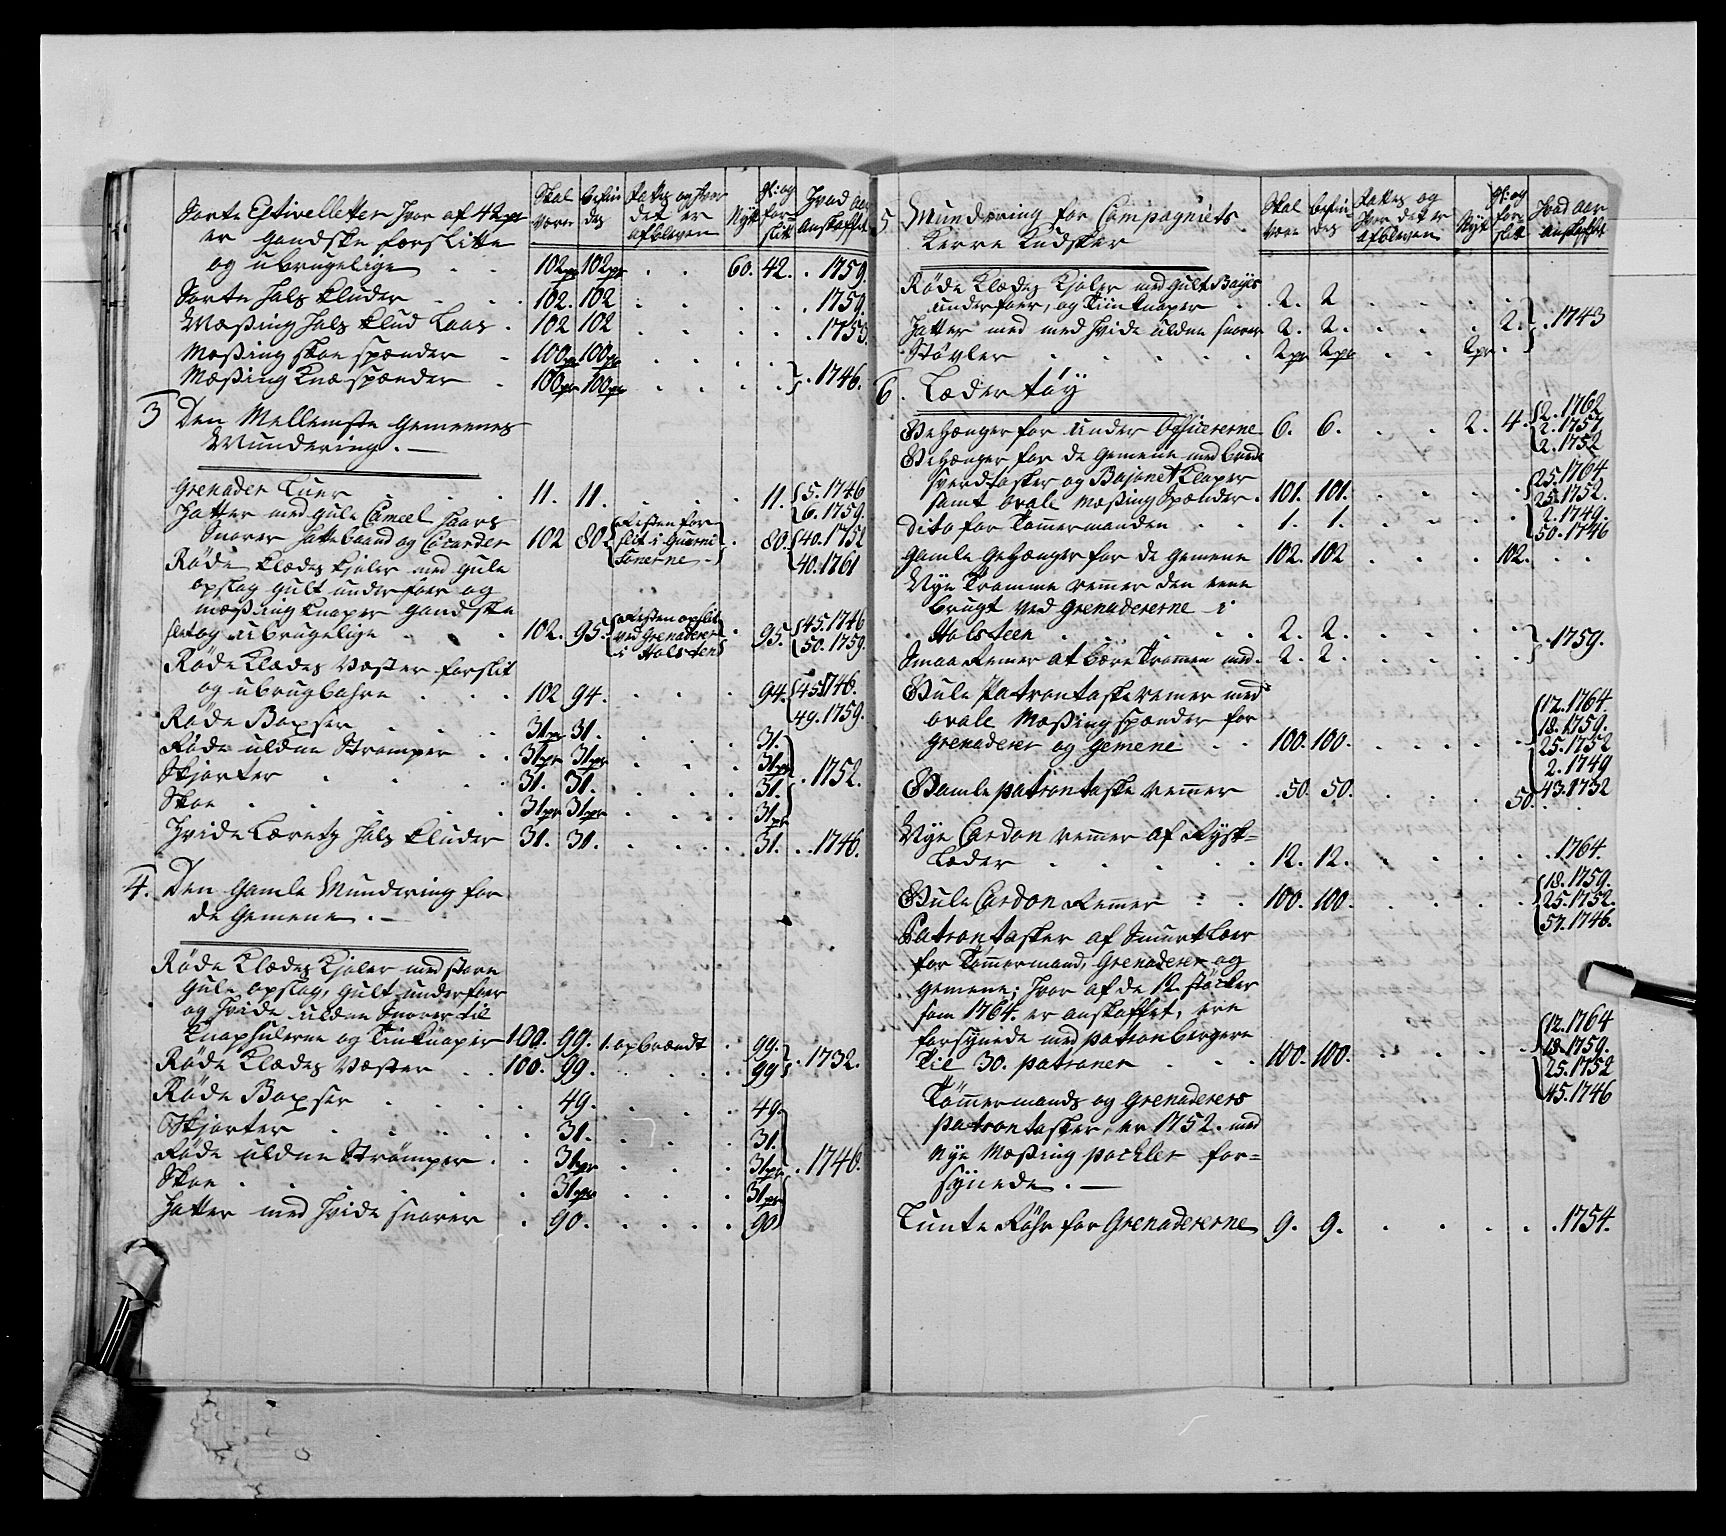 Skal være | befindes | Fattes og hvor det er afbleven | Nytt | gl: og forslitt | Hvad aar anskaffet
Sorte Estivelletter hvor af 42 pr
er gandske forslitte
og ubrugelige . . 102 pr 102 pr . . 60. 42. . 1759.
Sorte Hals Kluder . . 102. 102 . . . . 1759.
Messing Hals Klud Laas . 102 102 . . . . 1753.
Messing Skoe spænder . 100 pr 100 pr . . . .
Messing Knæspænder . 100 pr 100 pr . . . . } . 1746.
3 Den Mellemste Gemeenes
Mundering. —
Grenader Luer . . . 11. 11. . . . 11. { 5. 1746
Hatter med gule Cameel Haars 6. 1759.
Snorer Hattebaand og Cocarder 102 80 { Resten for
slit i Guarni
sonerne . } . 80. { 40. 1752
40. 1761
Røde Klædes Kjoler med gule
opslag gult underfoer og
messing Knaper gandske
slet og ubrugelige . . 102. 95. { Resten opslit
ved Grenaderer
i Holsten } . 95. { 45. 1746
50. 1759.
Røde Klædes Vester forslit
og ubrugbahre . . . 102 94. . . . 94. { 45. 1746.
49. 1759.
Røde Boxser . . . 31 pr 31. . . . 31.
Røde uldne Strømper . . 31 pr 31 pr . . . 31 pr
Skjorter . . . . 31. 31. . . . 31. } . 1752.
Skoe . . . . . 31 pr 31 pr . . . 31 pr
Hvide Lærets Hals Kluder 31. 31. . . . 31. . . 1746.
4. Den gamle Mundering for
de Gemene . —
Røde Klædes Kjoler med store
gule opslag, gult underfoer
og hvide uldne Snorer til
Knaphulerne og Tin Knaper 100. 99. 1. opbrændt . 99.
Røde Klædes Vester . . 100. 99. . . . 99 } . 1732.
Røde Boxser . . . . 49. . . . 49.
Skjorter . . . . . 31. . . . 31.
Røde uldne Strømper . . 31 pr . . . 31 pr } . 1746.
Skoe . . . . . 31 pr . . . 31 pr
Hatter med hvide snorer . 90. . . . . 90
Skal være | befindes | Fattes og hvor det er afbleven | Nytt | gl: og forslitt | Hvad aar anskaffet
5 Mundering for Compagniets
Kerre Kudsker
Røde Klædes Kjoler med gult Bayes
underfoer, og Tin Knaper . 2. 2 . . . .
Hatter med med hvide uldne snorer 2. 2. . . . 2. } . 1743
Støvler . . . . . 2 pr 2 pr . . 2 pr .
6. Læder tøy
Gehænger for under Officererne 6. 6. . . 2. 4. { 2. 1762
2. 1757
2. 1752
Gehænger for de Gemene med brede
sverdtasker og Bajonet Klaper
samt ovale Messing Spænder . 101. 101. . . . . { 25. 1764
25. 1752.
Dito for Tømermanden . . 1. 1. . . . . 2. 1749.
50. 1746
Gamle Gehænger for de Gemene 102. 102 . . . 102. . .
Nye Tromme remer den eene
brugt ved Grenadererne i
Holsteen . . . . . 2. 2. . . . .
Smaa Remer at bære Tromen med. 2. 2. . . . . } . 1759.
Gule Patrontaske remer med
ovale Messing spænder for
Grenaderer og Gemene . . 100. 100. . . . . { 12. 1764.
18. 1759.
25. 1752
2. 1749
43. 1732
Gamle patrontaske remer . 50. 50. . . . 50. .
Nye Cardon remer af Rysk-
Læder . . . . . 12. 12. . . . . . 1764.
Gule Cardon Remer . . 100. 100. . . . . { 18. 1759.
25. 1752.
57. 1746.
Patrontasker af Smurt Lær
for Tømermand, Grenaderer og
gemene; hvor af de 12 støcker
som 1764. er anskaffet, ere
forsynede med patronbergere
til 30. patroner . . . 100. 100. . . . . { 12. 1764
18. 1759.
25. 1752
45. 1746
Tømermands og Grenaderers
patrontasker, er 1752. med
Nye Messing pockler for-
synede. —
Lunte Røhr for Grenadererne 9. 9. . . . . . 1754.